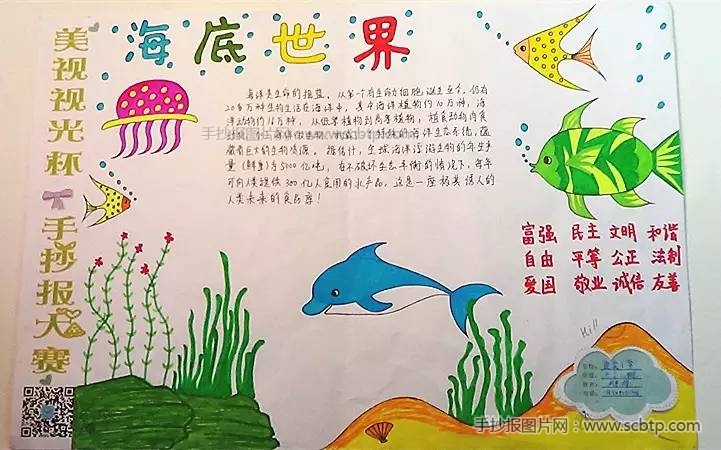 海底世界
美视视光杯
手抄报大赛
海洋是生命的摇篮，从第一个有生命的细胞诞生至今，仍有
20多万种生物生活在海洋中，其中海洋植物约10万种，海
洋动物约16万种，从低等植物到高等植物，植食动物肉食
手抄报图片网：www.scbtp.com
蕴藏着巨大的生物资源。据估计，全球海洋浮游生物的年生产
量(鲜重)为5000亿吨，在不破坏生态平衡的情况下，每年
可向人类提供300亿人食用的水产品，这是一座极其诱人的
人类未来的食品库！
富强 民主 文明 和谐
自由 平等 公正 法制
爱国 敬业 诚信 友善
Hi!!
手抄报图片网：www.scbtp.com